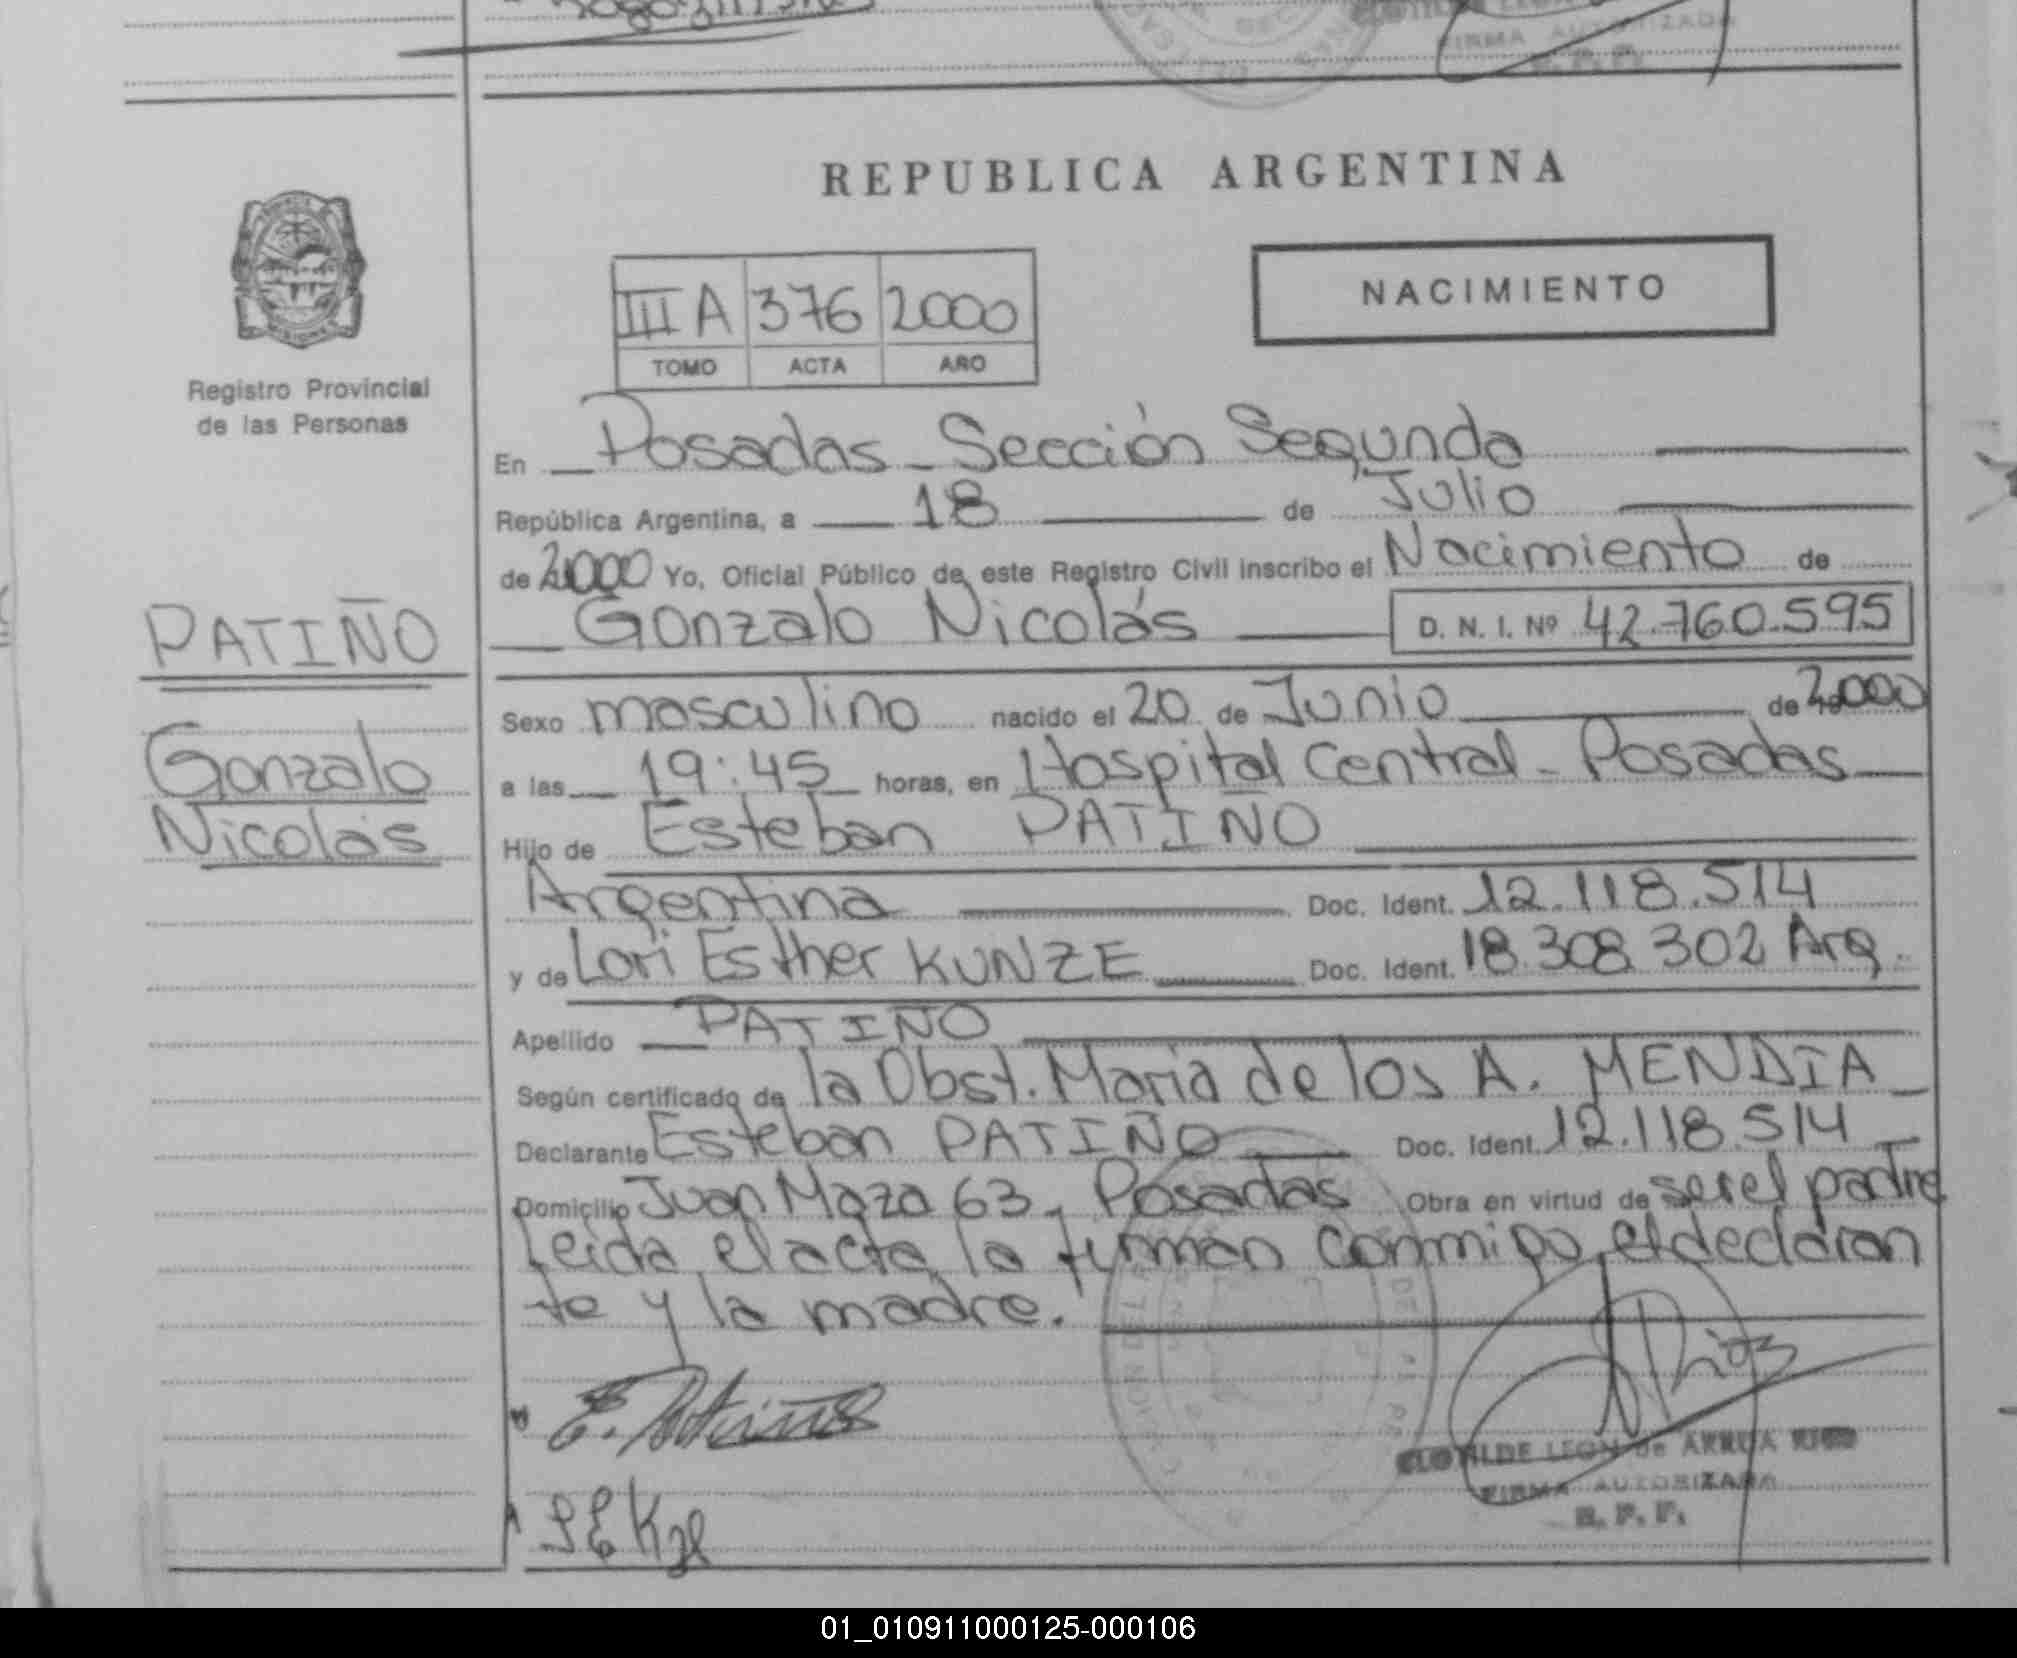 FIRMA AUTORIZADA
R. P. P.
REPUBLICA ARGENTINA
NACIMIENTO
III A 376 2000
TOMO ACTA AÑO
Registro Provincial
de las Personas
En Posadas - Sección Segunda
República Argentina, a 18 de Julio
de 2000 Yo, Oficial Público de este Registro Civil inscribo el Nacimiento de
Gonzalo Nicolás D. N. I. Nº 42.760.595
PATIÑO
Gonzalo
Nicolás
Sexo masculino nacido el 20 de Junio de 2000
a las 19:45 horas, en Hospital Central - Posadas
Hijo de Esteban PATIÑO
Argentina Doc. Ident. 12.118.514
y de Lori Esther KUNZE Doc. Ident. 18.308.302 Arg.
Apellido PATIÑO
Según certificado de la Obst. María de los A. MENDIA
Declarante Esteban PATIÑO Doc. Ident. 12.118.514
Domicilio Juan Maza 63 - Posadas Obra en virtud de ser el padre
Leída el acta la firman conmigo, el declaran
te y la madre.
E. Patiño
CLOTILDE LEON de ARRUA RIOS
FIRMA AUTORIZADA
R. P. P.
01_010911000125-000106